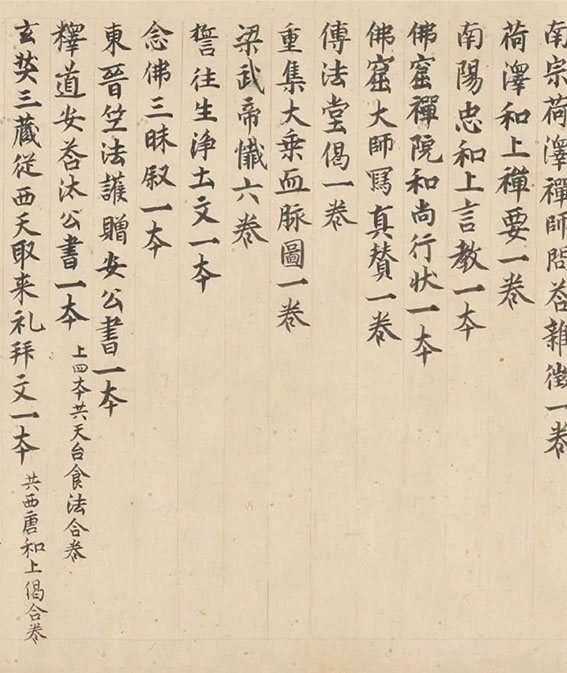 南宗荷澤禪師問荅雜徵一卷
荷澤和上禪要一卷
南陽忠和上言教一本
佛窟禪院和尚行狀一本
佛窟大師寫真賛一卷
傳法堂偈一卷
重集大乗血脉圖一卷
梁武帝懺六卷
誓往生浄土文一本
念佛三昧叙一本
東晉竺法護贈安公書一本
釋道安荅汰公書一本 上四本共天台食法合卷
玄奘三藏從西天取来礼拜文一本 共西唐和上偈合卷